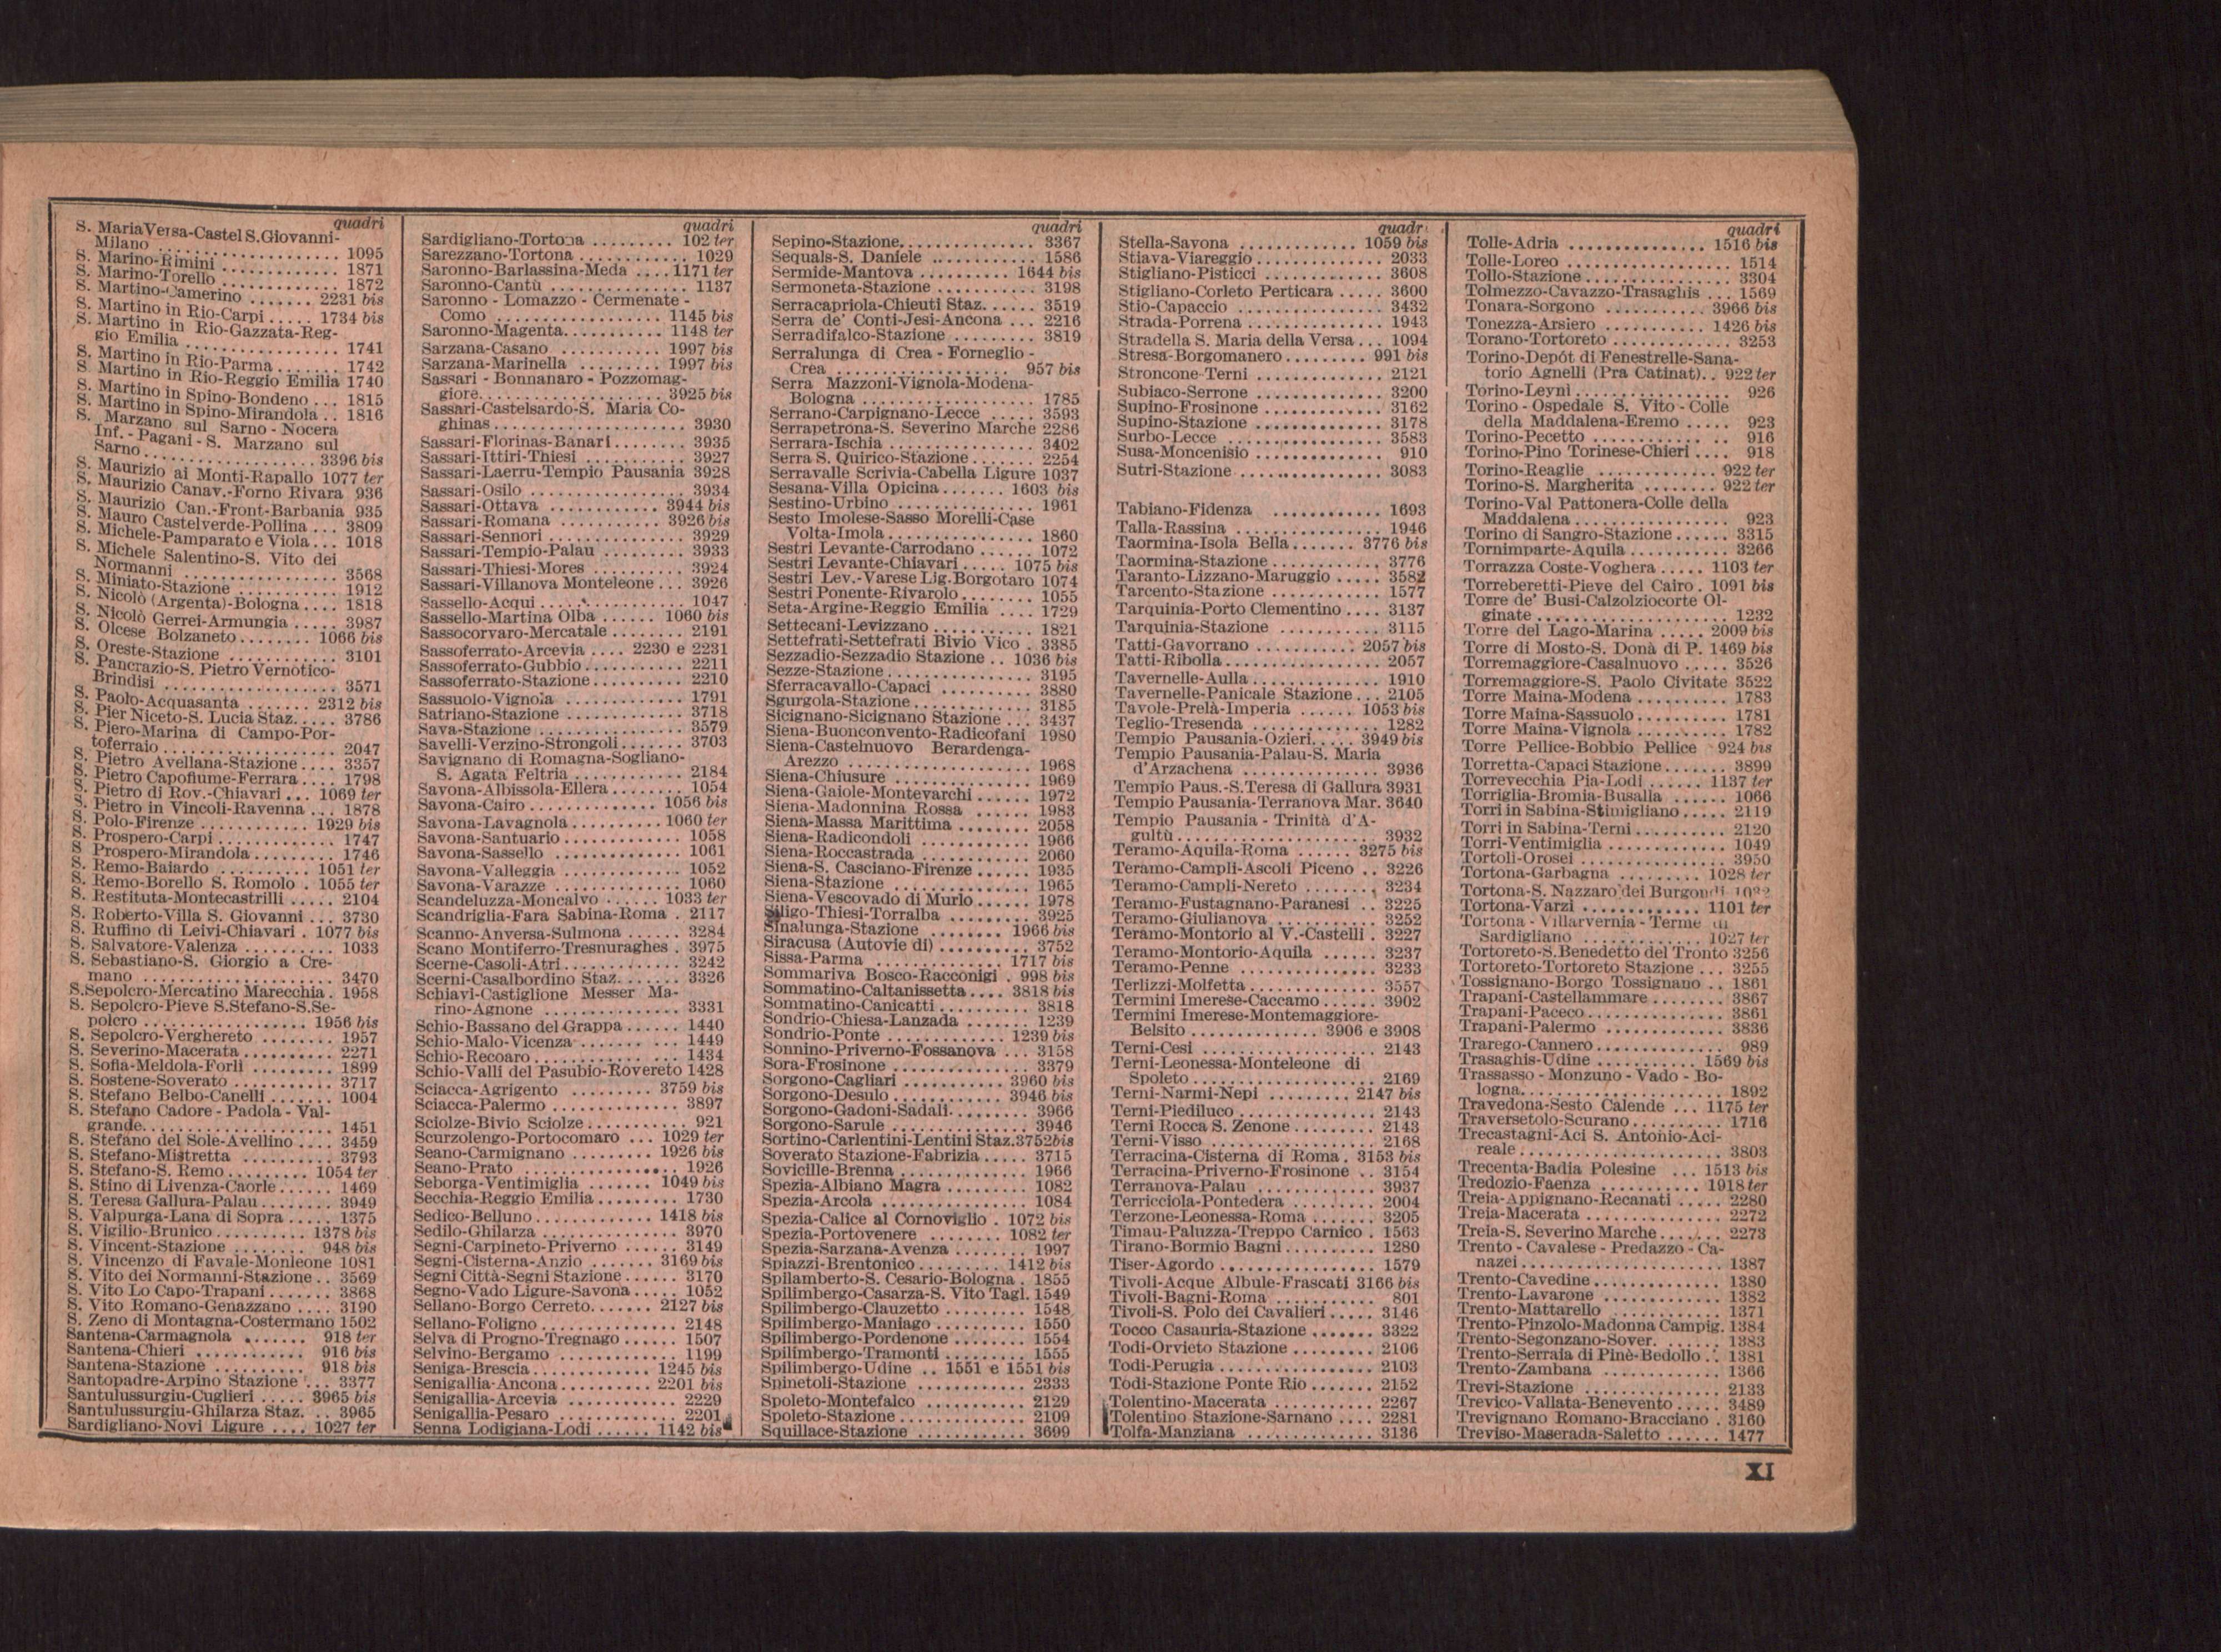 quadri
S. Maria Versa-Castel S. Giovanni-
Milano ................ 1095
S. Marino-Rimini ............ 1871
S. Marino-Torello ............ 1872
S. Martino-Camerino ....... 2231 bis
S. Martino in Rio-Carpi ..... 1734 bis
S. Martino in Rio-Gazzata-Reg-
gio Emilia ................. 1741
S. Martino in Rio-Parma ....... 1742
S. Martino in Rio-Reggio Emilia 1740
S. Martino in Spino-Bondeno ... 1815
S. Martino in Spino-Mirandola .. 1816
S. Marzano sul Sarno - Nocera
Inf. - Pagani - S. Marzano sul
Sarno .................. 3396 bis
S. Maurizio ai Monti-Rapallo 1077 ter
S. Maurizio Canav.-Forno Rivara 936
S. Maurizio Can.-Front-Barbania 935
S. Mauro Castelverde-Pollina ... 3809
S. Michele-Pamparato e Viola ... 1018
S. Michele Salentino-S. Vito dei
Normanni ................ 3568
S. Miniato-Stazione ........... 1912
S. Nicolò (Argenta)-Bologna .... 1818
S. Nicolò Gerrei-Armungia ..... 3987
S. Olcese Bolzaneto ........ 1066 bis
S. Oreste-Stazione ............ 3101
S. Pancrazio-S. Pietro Vernotico-
Brindisi .................. 3571
S. Paolo-Acquasanta ....... 2312 bis
S. Pier Niceto-S. Lucia Staz. .... 3786
S. Piero-Marina di Campo-Por-
toferraio .................. 2047
S. Pietro Avellana-Stazione .... 3357
S. Pietro Capofiume-Ferrara .... 1798
S. Pietro di Rov.-Chiavari ... 1069 ter
S. Pietro in Vincoli-Ravenna ... 1878
S. Polo-Firenze ........... 1929 bis
S. Prospero-Carpi ............. 1747
S Prospero-Mirandola ......... 1746
S. Remo-Baiardo .......... 1051 ter
S. Remo-Borello S. Romolo . 1055 ter
S. Restituta-Montecastrilli ..... 2104
S. Roberto-Villa S. Giovanni ... 3730
S. Ruffino di Leivi-Chiavari . 1077 bis
S. Salvatore-Valenza .......... 1033
S. Sebastiano-S. Giorgio a Cre-
mano .................... 3470
S.Sepolcro-Mercatino Marecchia . 1958
S. Sepolcro-Pieve S.Stefano-S.Se-
polcro ................. 1956 bis
S. Sepolcro-Verghereto ........ 1957
S. Severino-Macerata .......... 2271
S. Sofia-Meldola-Forlì ......... 1899
S. Sostene-Soverato ........... 3717
S. Stefano Belbo-Canelli ....... 1004
S. Stefano Cadore - Padola - Val-
grande .................... 1451
S. Stefano del Sole-Avellino .... 3459
S. Stefano-Mistretta .......... 3793
S. Stefano-S. Remo ........ 1054 ter
S. Stino di Livenza-Caorle ...... 1469
S. Teresa Gallura-Palau ........ 3949
S. Valpurga-Lana di Sopra ..... 1375
S. Vigilio-Brunico .......... 1378 bis
S. Vincent-Stazione ........ 948 bis
S. Vincenzo di Favale-Monleone 1081
S. Vito dei Normanni-Stazione .. 3569
S. Vito Lo Capo-Trapani ....... 3868
S. Vito Romano-Genazzano .... 3190
S. Zeno di Montagna-Costermano 1502
Santena-Carmagnola ....... 918 ter
Santena-Chieri ............ 916 bis
Santena-Stazione .......... 918 bis
Santopadre-Arpino Stazione ... 3377
Santulussurgiu-Cuglieri ..... 3965 bis
Santulussurgiu-Ghilarza Staz. .. 3965
Sardigliano-Novi Ligure .... 1027 ter
quadri
Sardigliano-Tortona ......... 102 ter
Sarezzano-Tortona ............ 1029
Saronno-Barlassina-Meda .... 1171 ter
Saronno-Cantù ............... 1137
Saronno - Lomazzo - Cermenate -
Como .................. 1145 bis
Saronno-Magenta ........... 1148 ter
Sarzana-Casano ........... 1997 bis
Sarzana-Marinella ......... 1997 bis
Sassari - Bonnanaro - Pozzomag-
giore .................... 3925 bis
Sassari-Castelsardo-S. Maria Co-
ghinas .................... 3930
Sassari-Florinas-Banari ........ 3935
Sassari-Ittiri-Thiesi ........... 3927
Sassari-Laerru-Tempio Pausania 3928
Sassari-Osilo ................. 3934
Sassari-Ottava ............ 3944 bis
Sassari-Romana ........... 3926 bis
Sassari-Sennori ............... 3929
Sassari-Tempio-Palau ......... 3933
Sassari-Thiesi-Mores .......... 3924
Sassari-Villanova Monteleone ... 3926
Sassello-Acqui ................ 1047
Sassello-Martina Olba ...... 1060 bis
Sassocorvaro-Mercatale ........ 2191
Sassoferrato-Arcevia .... 2230 e 2231
Sassoferrato-Gubbio ........... 2211
Sassoferrato-Stazione .......... 2210
Sassuolo-Vignola .............. 1791
Satriano-Stazione ............. 3718
Sava-Stazione ................ 3579
Savelli-Verzino-Strongoli ....... 3703
Savignano di Romagna-Sogliano-
S. Agata Feltria ............ 2184
Savona-Albissola-Ellera ........ 1054
Savona-Cairo ............. 1056 bis
Savona-Lavagnola .......... 1060 ter
Savona-Santuario ............. 1058
Savona-Sassello .............. 1061
Savona-Valleggia ............. 1052
Savona-Varazze .............. 1060
Scandeluzza-Moncalvo ...... 1033 ter
Scandriglia-Fara Sabina-Roma . 2117
Scanno-Anversa-Sulmona ...... 3284
Scano Montiferro-Tresnuraghes . 3975
Scerne-Casoli-Atri ............. 3242
Scerni-Casalbordino Staz. ...... 3326
Schiavi-Castiglione Messer Ma-
rino-Agnone ............... 3331
Schio-Bassano del Grappa ...... 1440
Schio-Malo-Vicenza ........... 1449
Schio-Recoaro ................ 1434
Schio-Valli del Pasubio-Rovereto 1428
Sciacca-Agrigento ......... 3759 bis
Sciacca-Palermo .............. 3897
Sciolze-Bivio Sciolze ........... 921
Scurzolengo-Portocomaro ... 1029 ter
Seano-Carmignano ......... 1926 bis
Seano-Prato ................. 1926
Seborga-Ventimiglia ........ 1049 bis
Secchia-Reggio Emilia ......... 1730
Sedico-Belluno ............. 1418 bis
Sedilo-Ghilarza ............... 3970
Segni-Carpineto-Priverno ...... 3149
Segni-Cisterna-Anzio ....... 3169 bis
Segni Città-Segni Stazione ...... 3170
Segno-Vado Ligure-Savona ..... 1052
Sellano-Borgo Cerreto ....... 2127 bis
Sellano-Foligno ............... 2148
Selva di Progno-Tregnago ...... 1507
Selvino-Bergamo ............. 1199
Seniga-Brescia ............. 1245 bis
Senigallia-Ancona .......... 2201 bis
Senigallia-Arcevia ............. 2229
Senigallia-Pesaro ............. 2201
Senna Lodigiana-Lodi ...... 1142 bis
quadri
Sepino-Stazione ............... 3367
Sequals-S. Daniele ............ 1586
Sermide-Mantova .......... 1644 bis
Sermoneta-Stazione ........... 3198
Serracapriola-Chieuti Staz. ..... 3519
Serra de' Conti-Jesi-Ancona ... 2216
Serradifalco-Stazione .......... 3819
Serralunga di Crea - Forneglio -
Crea ................... 957 bis
Serra Mazzoni-Vignola-Modena-
Bologna ................... 1785
Serrano-Carpignano-Lecce ..... 3593
Serrapetrona-S. Severino Marche 2286
Serrara-Ischia ................ 3402
Serra S. Quirico-Stazione ....... 2254
Serravalle Scrivia-Cabella Ligure 1037
Sesana-Villa Opicina ....... 1603 bis
Sestino-Urbino ............... 1961
Sesto Imolese-Sasso Morelli-Case
Volta-Imola ................ 1860
Sestri Levante-Carrodano ...... 1072
Sestri Levante-Chiavari ..... 1075 bis
Sestri Lev.-Varese Lig.Borgotaro 1074
Sestri Ponente-Rivarolo ........ 1055
Seta-Argine-Reggio Emilia .... 1729
Settecani-Levizzano ........... 1821
Settefrati-Settefrati Bivio Vico . 3385
Sezzadio-Sezzadio Stazione .. 1036 bis
Sezze-Stazione ................ 3195
Sferracavallo-Capaci ........... 3880
Sgurgola-Stazione ............. 3185
Sicignano-Sicignano Stazione ... 3437
Siena-Buonconvento-Radicofani 1980
Siena-Castelnuovo Berardenga-
Arezzo .................... 1968
Siena-Chiusure ............... 1969
Siena-Gaiole-Montevarchi ...... 1972
Siena-Madonnina Rossa ...... 1983
Siena-Massa Marittima ........ 2058
Siena-Radicondoli ............. 1966
Siena-Roccastrada ............ 2060
Siena-S. Casciano-Firenze ...... 1935
Siena-Stazione ................ 1965
Siena-Vescovado di Murlo ...... 1978
Siligo-Thiesi-Torralba ......... 3925
Sinalunga-Stazione ........ 1966 bis
Siracusa (Autovie di) .......... 3752
Sissa-Parma ............... 1717 bis
Sommariva Bosco-Racconigi . 998 bis
Sommatino-Caltanissetta .... 3818 bis
Sommatino-Canicattì .......... 3818
Sondrio-Chiesa-Lanzada ....... 1239
Sondrio-Ponte ............. 1239 bis
Sonnino-Priverno-Fossanova ... 3158
Sora-Frosinone ................ 3379
Sorgono-Cagliari ........... 3960 bis
Sorgono-Desulo ............ 3946 bis
Sorgono-Gadoni-Sadali ......... 3966
Sorgono-Sarule ............... 3946
Sortino-Carlentini-Lentini Staz.3752bis
Soverato Stazione-Fabrizia ..... 3715
Sovicille-Brenna ............... 1966
Spezia-Albiano Magra ......... 1082
Spezia-Arcola ................ 1084
Spezia-Calice al Cornoviglio . 1072 bis
Spezia-Portovenere ........ 1082 ter
Spezia-Sarzana-Avenza ........ 1997
Spiazzi-Brentonico .......... 1412 bis
Spilamberto-S. Cesario-Bologna . 1855
Spilimbergo-Casarza-S. Vito Tagl. 1549
Spilimbergo-Clauzetto ......... 1548
Spilimbergo-Maniago .......... 1550
Spilimbergo-Pordenone ........ 1554
Spilimbergo-Tramonti ......... 1555
Spilimbergo-Udine .. 1551 e 1551 bis
Spinetoli-Stazione ............ 2333
Spoleto-Montefalco ........... 2129
Spoleto-Stazione .............. 2109
Squillace-Stazione ............ 3699
quadr
Stella-Savona ............ 1059 bis
Stiava-Viareggio .............. 2033
Stigliano-Pisticci ............. 3608
Stigliano-Corleto Perticara ..... 3600
Stio-Capaccio ................ 3432
Strada-Porrena ............... 1943
Stradella S. Maria della Versa ... 1094
Stresa-Borgomanero ........ 991 bis
Stroncone-Terni .............. 2121
Subiaco-Serrone .............. 3200
Supino-Frosinone ............. 3162
Supino-Stazione .............. 3178
Surbo-Lecce ................. 3583
Susa-Moncenisio .............. 910
Sutri-Stazione ................ 3083
Tabiano-Fidenza ............ 1693
Talla-Rassina ................ 1946
Taormina-Isola Bella ....... 3776 bis
Taormina-Stazione ............ 3776
Taranto-Lizzano-Maruggio ..... 3582
Tarcento-Stazione ............. 1577
Tarquinia-Porto Clementino .... 3137
Tarquinia-Stazione ........... 3115
Tatti-Gavorrano .......... 2057 bis
Tatti-Ribolla ................. 2057
Tavernelle-Aulla .............. 1910
Tavernelle-Panicale Stazione ... 2105
Tavole-Prelà-Imperia ...... 1053 bis
Teglio-Tresenda .............. 1282
Tempio Pausania-Ozieri ..... 3949 bis
Tempio Pausania-Palau-S. Maria
d'Arzachena .............. 3936
Tempio Paus.-S.Teresa di Gallura 3931
Tempio Pausania-Terranova Mar. 3640
Tempio Pausania - Trinità d'A-
gultù ..................... 3932
Teramo-Aquila-Roma ...... 3275 bis
Teramo-Campli-Ascoli Piceno .. 3226
Teramo-Campli-Nereto ........ 3234
Teramo-Fustagnano-Paranesi .. 3225
Teramo-Giulianova ........... 3252
Teramo-Montorio al V.-Castelli . 3227
Teramo-Montorio-Aquila ...... 3237
Teramo-Penne ............... 3233
Terlizzi-Molfetta .............. 3557
Termini Imerese-Caccamo ...... 3902
Termini Imerese-Montemaggiore-
Belsito ............. 3906 e 3908
Terni-Cesi ................... 2143
Terni-Leonessa-Monteleone di
Spoleto .................... 2169
Terni-Narmi-Nepi ......... 2147 bis
Terni-Piediluco ............... 2143
Terni Rocca S. Zenone ......... 2143
Terni-Visso .................. 2168
Terracina-Cisterna di Roma . 3153 bis
Terracina-Priverno-Frosinone .. 3154
Terranova-Palau ............. 3937
Terricciola-Pontedera .......... 2004
Terzone-Leonessa-Roma ....... 3205
Timau-Paluzza-Treppo Carnico . 1563
Tirano-Bormio Bagni .......... 1280
Tiser-Agordo ................. 1579
Tivoli-Acque Albule-Frascati 3166 bis
Tivoli-Bagni-Roma ........... 801
Tivoli-S. Polo dei Cavalieri ..... 3146
Tocco Casauria-Stazione ....... 3322
Todi-Orvieto Stazione ......... 2106
Todi-Perugia ................. 2103
Todi-Stazione Ponte Rio ....... 2152
Tolentino-Macerata ........... 2267
Tolentino Stazione-Sarnano .... 2281
Tolfa-Manziana .............. 3136
quadri
Tolle-Adria ............... 1516 bis
Tolle-Loreo .................. 1514
Tollo-Stazione ................ 3304
Tolmezzo-Cavazzo-Trasaghis ... 1569
Tonara-Sorgono ........... 3966 bis
Tonezza-Arsiero ........... 1426 bis
Torano-Tortoreto ............. 3253
Torino-Depôt di Fenestrelle-Sana-
torio Agnelli (Pra Catinat) .. 922 ter
Torino-Leynì ................. 926
Torino - Ospedale S. Vito - Colle
della Maddalena-Eremo ..... 923
Torino-Pecetto ............... 916
Torino-Pino Torinese-Chieri .... 918
Torino-Reaglie ............. 922 ter
Torino-S. Margherita ........ 922 ter
Torino-Val Pattonera-Colle della
Maddalena ................. 923
Torino di Sangro-Stazione ...... 3315
Tornimparte-Aquila ........... 3266
Torrazza Coste-Voghera ..... 1103 ter
Torreberetti-Pieve del Cairo . 1091 bis
Torre de' Busi-Calzolziocorte Ol-
ginate ..................... 1232
Torre del Lago-Marina ..... 2009 bis
Torre di Mosto-S. Donà di P. 1469 bis
Torremaggiore-Casalnuovo ..... 3526
Torremaggiore-S. Paolo Civitate 3522
Torre Maina-Modena .......... 1783
Torre Maina-Sassuolo .......... 1781
Torre Maina-Vignola .......... 1782
Torre Pellice-Bobbio Pellice 924 bis
Torretta-Capaci Stazione ....... 3899
Torrevecchia Pia-Lodi ...... 1137 ter
Torriglia-Bromia-Busalla ...... 1066
Torri in Sabina-Stimigliano ..... 2119
Torri in Sabina-Terni .......... 2120
Torri-Ventimiglia ............. 1049
Tortolì-Orosei ................ 3950
Tortona-Garbagna ......... 1028 ter
Tortona-S. Nazzaro dei Burgondi
Tortona-Varzi ............. 1101 ter
Tortona - Villarvernia - Terme di
Sardigliano ............. 1027 ter
Tortoreto-S.Benedetto del Tronto 3256
Tortoreto-Tortoreto Stazione ... 3255
Tossignano-Borgo Tossignano .. 1861
Trapani-Castellammare ........ 3867
Trapani-Paceco ............... 3861
Trapani-Palermo ............. 3836
Trarego-Cannero .............. 989
Trasaghis-Udine ........... 1569 bis
Trassasso - Monzuno - Vado - Bo-
logna ...................... 1892
Travedona-Sesto Calende ... 1175 ter
Traversetolo-Scurano .......... 1716
Trecastagni-Aci S. Antonio-Aci-
reale ...................... 3803
Trecenta-Badia Polesine ... 1513 bis
Tredozio-Faenza ........... 1918 ter
Treia-Appignano-Recanati ..... 2280
Treia-Macerata ............... 2272
Treia-S. Severino Marche ....... 2273
Trento - Cavalese - Predazzo - Ca-
nazei ...................... 1387
Trento-Cavedine .............. 1380
Trento-Lavarone ............. 1382
Trento-Mattarello ............ 1371
Trento-Pinzolo-Madonna Campig. 1384
Trento-Segonzano-Sover ....... 1383
Trento-Serraia di Pinè-Bedollo .. 1381
Trento-Zambana ............. 1366
Trevi-Stazione ............... 2133
Trevico-Vallata-Benevento ..... 3489
Trevignano Romano-Bracciano . 3160
Treviso-Maserada-Saletto ...... 1477
XI